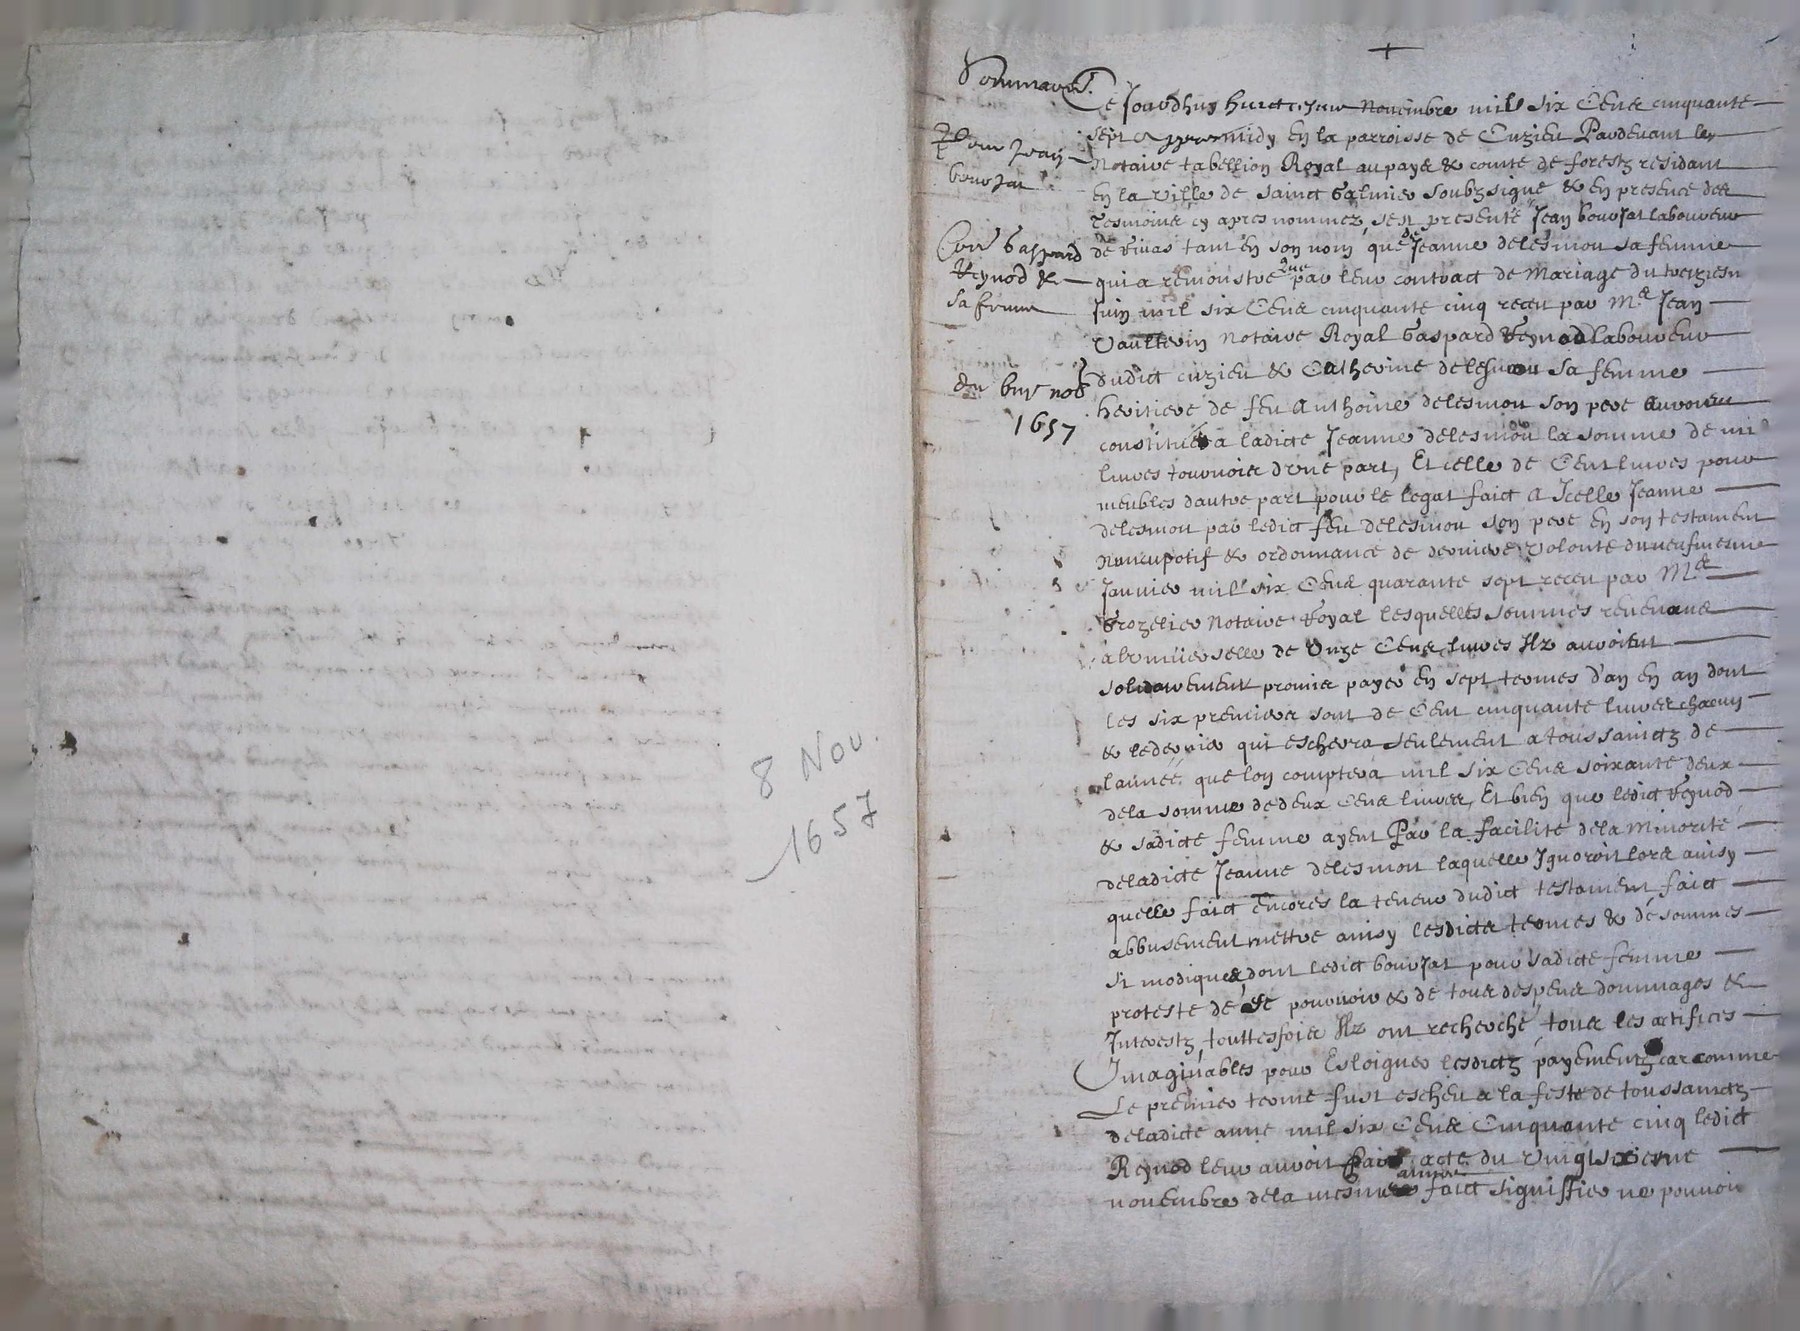 8 Nov.
1657
Sommation.
Pour Jean
bourjat
Con.^e Gaspard
Reynod &
sa femme
du bny no^e
1657
Ce Jourdhuy huictiesme Novembre mil six Cens cinquante
sept apres midy en la parroisse de Cuzieu Pardevant le
Notaire tabellion Royal au pays & comté de forestz residant
en la ville de sainct Galmier soubzsigné & en presence des
Tesmoins cy apres nommez, sest presenté Jean bourjat laboureur
de Rivas tant en son nom que de Jeanne delesmou sa femme
qui a remonstré que par leur contract de Mariage du treiziesme
Juin mil six Cens cinquante cinq receu par M^e Jean
Vaultevin Notaire Royal Gaspard Reynod laboureur
dudict cuzieu & Catherine delesmou sa femme
heritiere de feu Anthoine delesmou son pere auroient
constitué a ladicte Jeanne delesmou la somme de mil
livres tournois dune part, Et celle de Cent livres pour
meubles dautre part pour le legat faict a Icelle Jeanne
delesmou par ledict feu delesmou son pere en son testament
Nuncupatif & ordonnance de derniere volonté du neufviesme
Janvier mil six Cens quarante sept receu par M^e
Grozelier Notaire Royal lesquelles sommes revenans
a luniverselle de Unze Cens livres Ilz auroient
solidairement promis payer en sept termes d'an en an dont
les six premiers sont de Cent cinquante livres chacun
& le dernier qui eschera seulement a toussainctz de
lannée que lon comptera mil six Cens soixante deux
de la somme de deux Cens livres, Et bien que ledict Reynod
& sadicte femme ayent Par la facilité de la Minorité
de ladicte Jeanne delesmou laquelle Ignoroit lors ainsy
quelle faict encores la teneur dudict testament faict
abbusement mettre ainsy lesdicts termes & de sommes
si modiques dont ledict bourjat pour sadicte femme
proteste de se pourvoir & de tous despens dommages &
Interestz touttesfois Ilz ont recherché tous les artifices
Imaginables pour Esloigner lesdictz payementz car comme
Le premier terme fust escheu a la feste de toussainctz
de ladicte anne mil six Cens Cinquante cinq ledict
Reynod leur auroit Par acte du Vingt sixiesme
novembre de la mesme année faict signiffier ne pouvoir